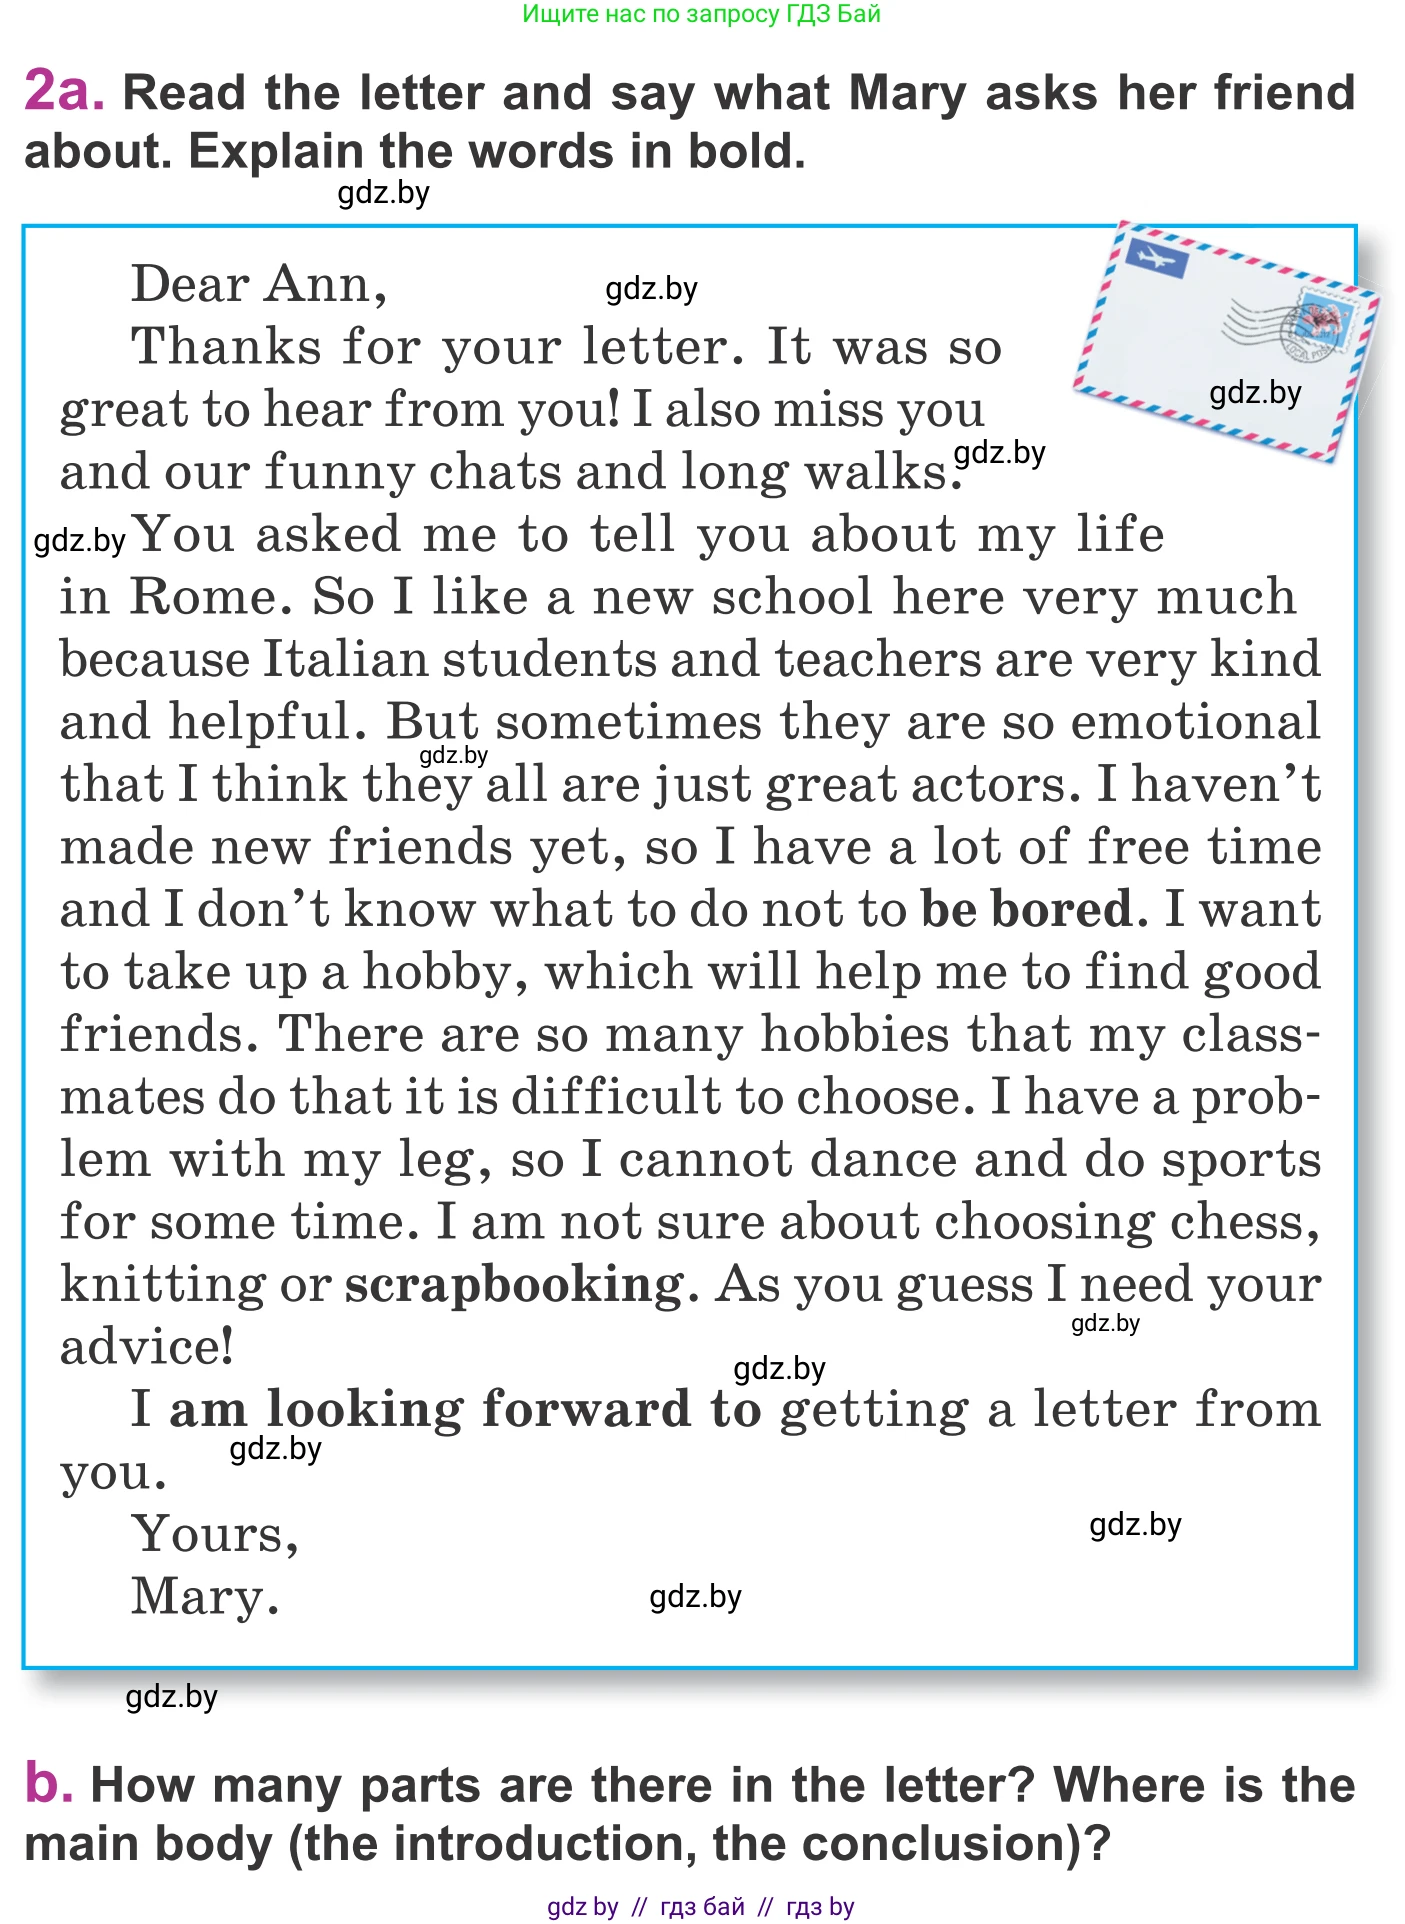 Ищите нас по запросу ГДЗ Бай
2a. Read the letter and say what Mary asks her friend
about. Explain the words in bold.
gdz.by
Dear Ann,
gdz.by
Thanks for your letter. It was so
great to hear from you! I also miss you
gdz.by
and our funny chats and long walks.
gdz.by
gdz.by
You asked me to tell you about my life
in Rome. So I like a new school here very much
because Italian students and teachers are very kind
and helpful. But sometimes they are so emotional
gdz.by
that I think they all are just great actors. I haven’t
made new friends yet, so I have a lot of free time
and I don’t know what to do not to be bored. I want
to take up a hobby, which will help me to find good
friends. There are so many hobbies that my class-
mates do that it is difficult to choose. I have a prob-
lem with my leg, so I cannot dance and do sports
for some time. I am not sure about choosing chess,
knitting or scrapbooking. As you guess I need your
gdz.by
advice!
gdz.by
I am looking forward to getting a letter from
gdz.by
you.
Yours,
gdz.by
Mary.
gdz.by
gdz.by
b. How many parts are there in the letter? Where is the
main body (the introduction, the conclusion)?
gdz by // гдз бай // гдз by